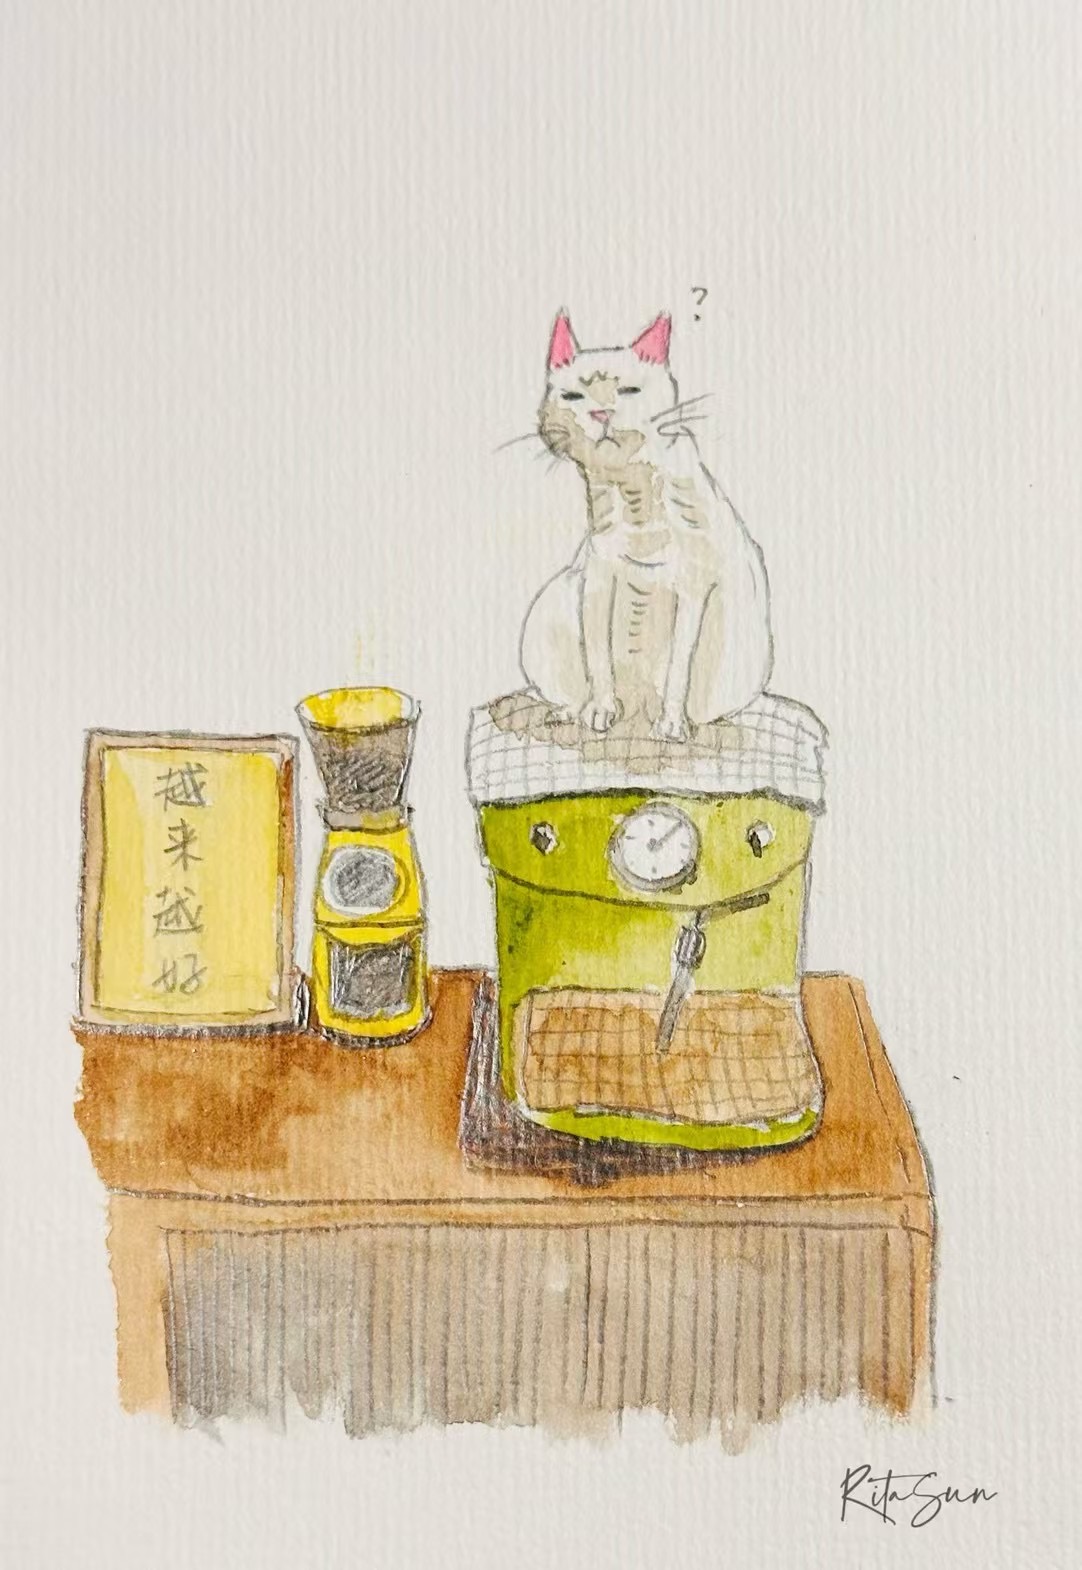 ?
越
来
越
好
Rita Sun